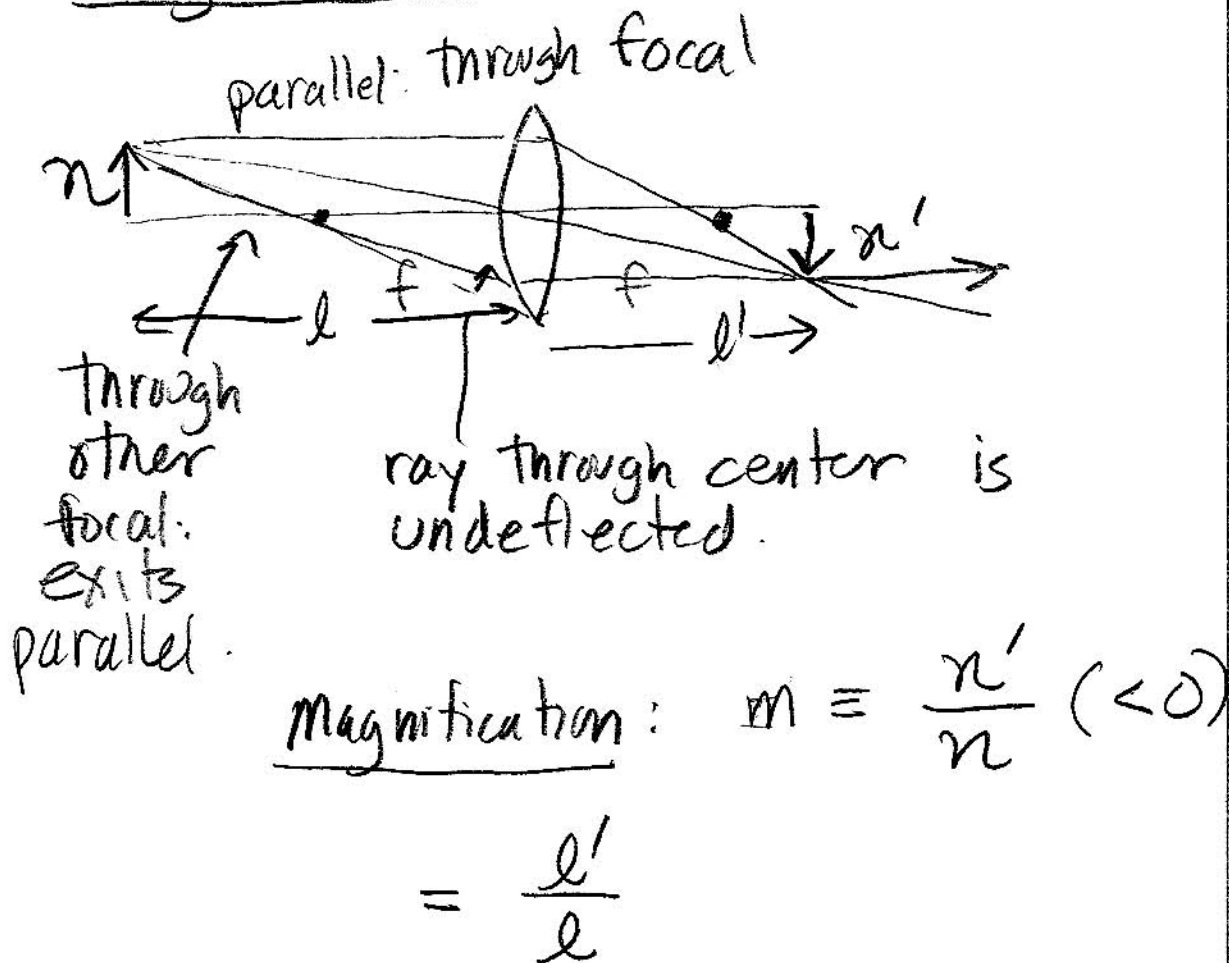 parallel: through focal
n
n'
f
f
l
l'
through
other
focal:
exits
parallel.
ray through center is
undeflected.
Magnification: m ≡ n'/n (<0)
= l'/l